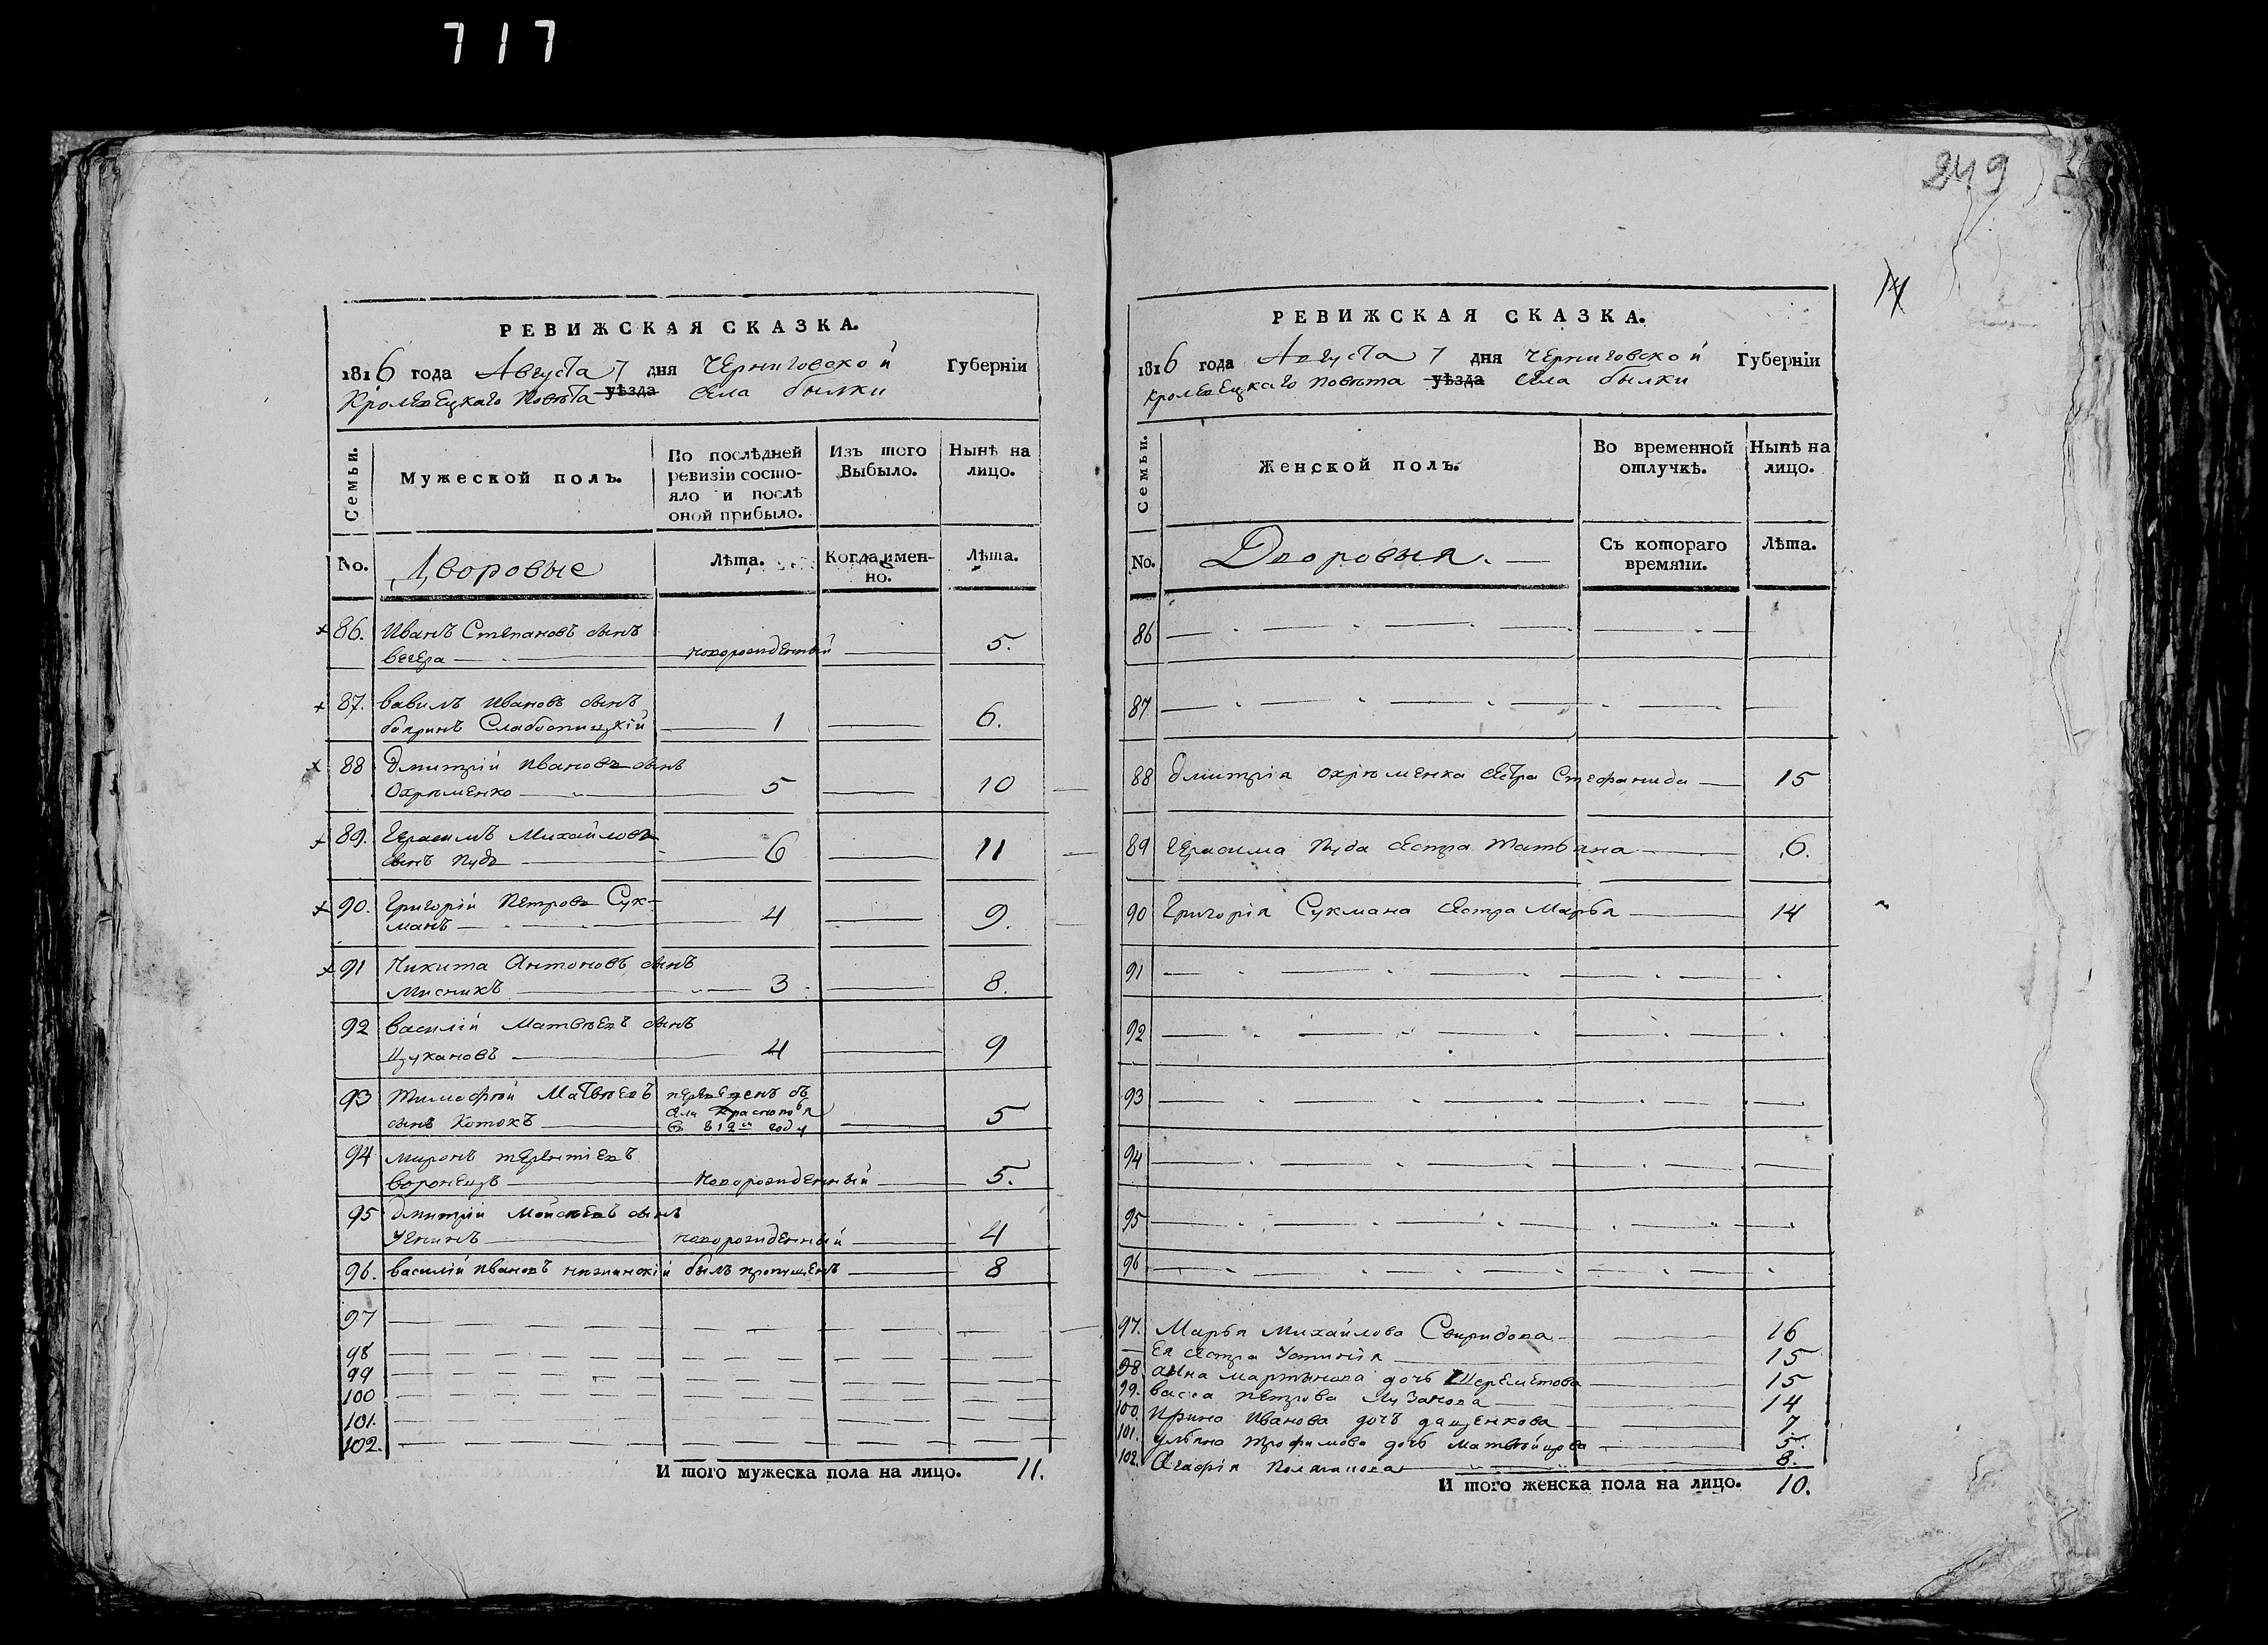 717
249
РЕВИЖСКАЯ СКАЗКА.
1816 года Августа 7 дня Черниговской Губерніи
Кролевецкаго Повѣта уѣзда села былки
Семьи.
Мужеской полъ.
По послѣдней ревизіи состояло и послѣ оной прибыло.
Изъ того Выбыло.
Нынѣ на лицо.
No.
Дворовые
Лѣта.
Когда имен-но.
Лѣта.
86. Иванъ Степановъ сынъ
вегера новорожденный 5.
87. вавилъ Ивановъ сынъ
Слабоспицкій 1 6.
88 Дмитрій Ивановъ сынъ
Охрѣменко 5 10
89. Герасимъ Михайловъ
сынъ Пудъ 6 11
90. Григорій Петровъ Сук-
манъ 4 9.
91 Никита Антоновъ сынъ
Мисникъ 3 8.
92 василій Матвѣевъ сынъ
Цукановъ 4 9
93 Тимофѣй Матвѣевъ
сынъ Котокъ
переведенъ съ
села
въ 812м году
5
94 миронъ терентіевъ
воронецъ новорожденный 5.
95 Дмитрій Мойсѣевъ сынъ
новорожденный 4
96. василій Ивановъ былъ пропущенъ 8
97
98
99
100
101.
102.
И того мужеска пола на лицо. 11.
РЕВИЖСКАЯ СКАЗКА.
1816 года Августа 7 дня Черниговской Губерніи
Кролевецкаго повѣта уѣзда села былки
Семьи.
Женской полъ.
Во временной отлучкѣ.
Нынѣ на лицо.
No.
Дворовыя.
Съ котораго времяни.
Лѣта.
86
87
88 Дмитрія Охрѣменка сестра Стефанида 15
89 Герасима Пуда сестра Татьяна 6.
90 Григорія Сукмана сестра Марья 14
91
92
93
94
95
96
97. Марья Михайлова Свиридова 16
Ея сестра Устинія 15
98 анна мартынова дочь Шереметова 15
99. васса петрова Лузанова 14
100. Ирина Иванова дочь дащенкова 7.
101. ульяна трофимова дочь 5.
102. Агафія 8.
И того женска пола на лицо. 10.